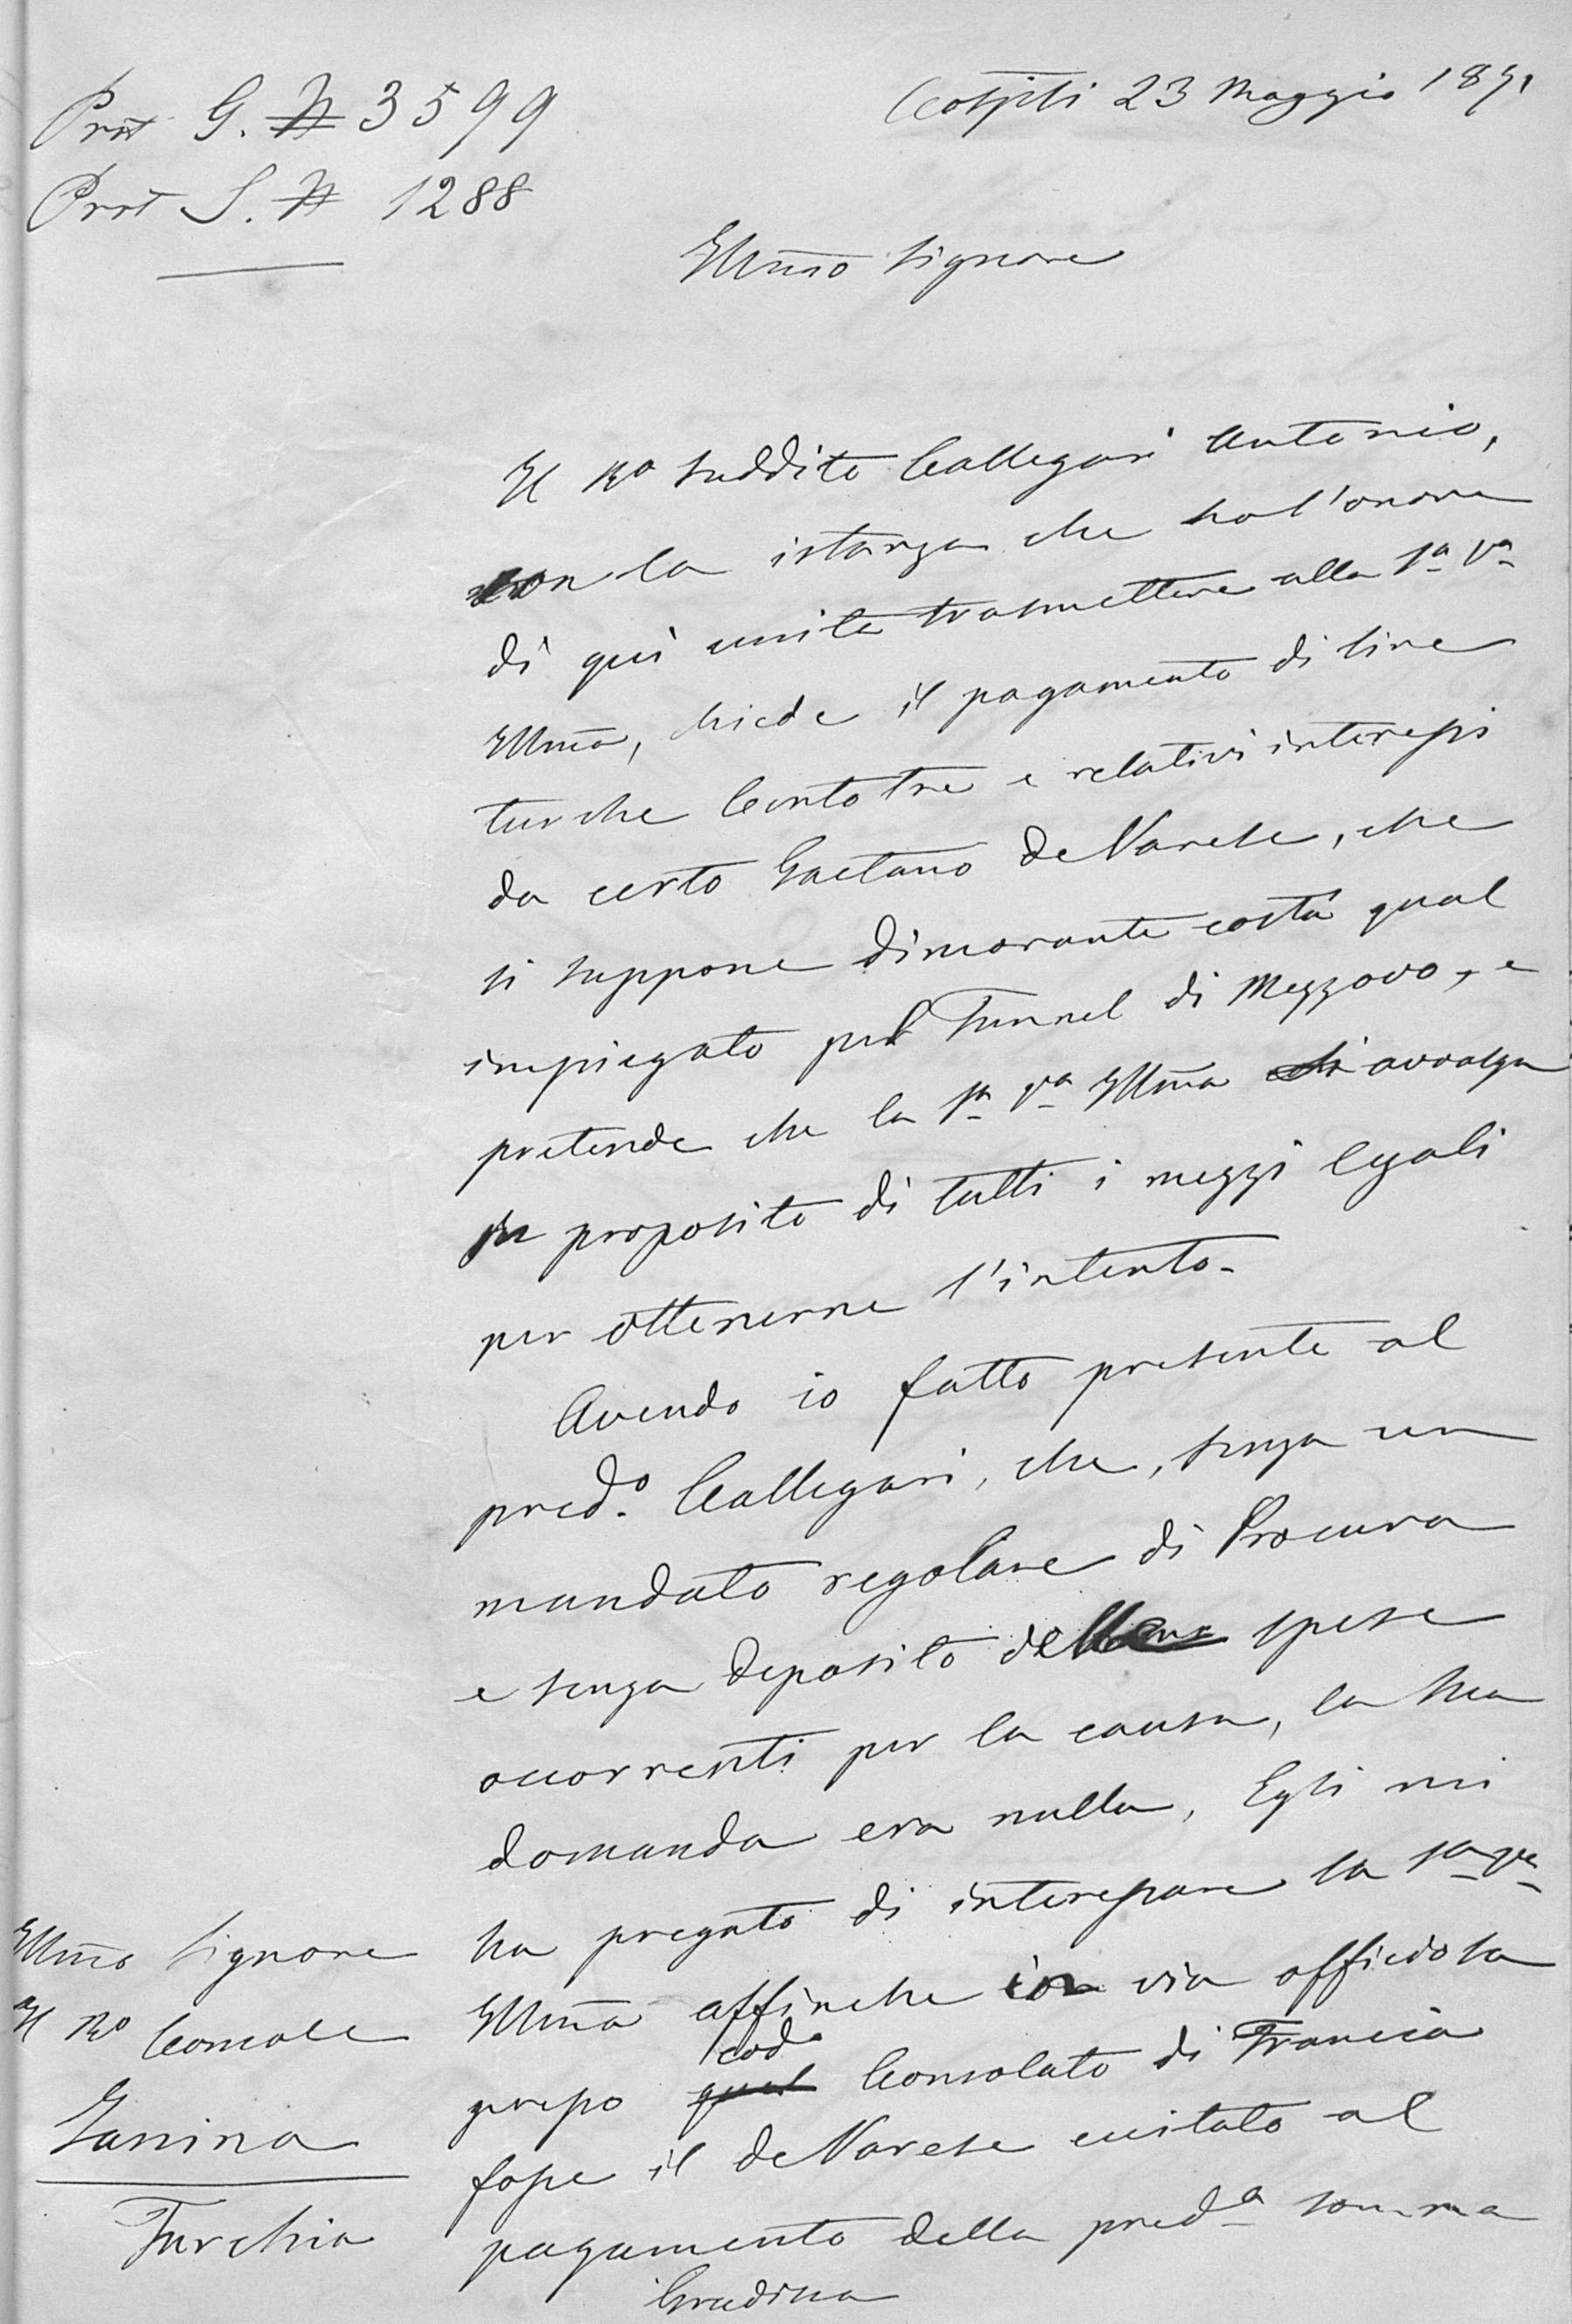 Prot G. N 3599
Prot S. N 1288
23 Maggio 1891
Illmo Signore
Il Ro suddito Callegari Antonio,
con la istanza che ho l'onore
di quì unita trasmettere alla Sa Va
Illma, chiede il pagamento di lire
turche Centotre e relativi interessi
da certo Gaetano de Varese, che
si suppone dimorante costà qual
impiegato pel Tunnel di Mezzovo, e
pretende che la Sa Va Illma si avvalga
in proposito di tutti i mezzi legali
per ottenerne l'intento.
Avendo io fatto presente al
predo. Callegari, che, senza un
mandato regolare di Procura
e senza deposito delle spese
occorrenti per la causa, la sua
domanda era nulla, Egli mi
ha pregato di interessare la Sa Va
Illma affinche in via officiosa
presso codo Consolato di Francia
fosse il de Varese eccitato al
pagamento della preda somma
Gradisca
Illmo Signore
Il Ro Console
Janina
Turchia